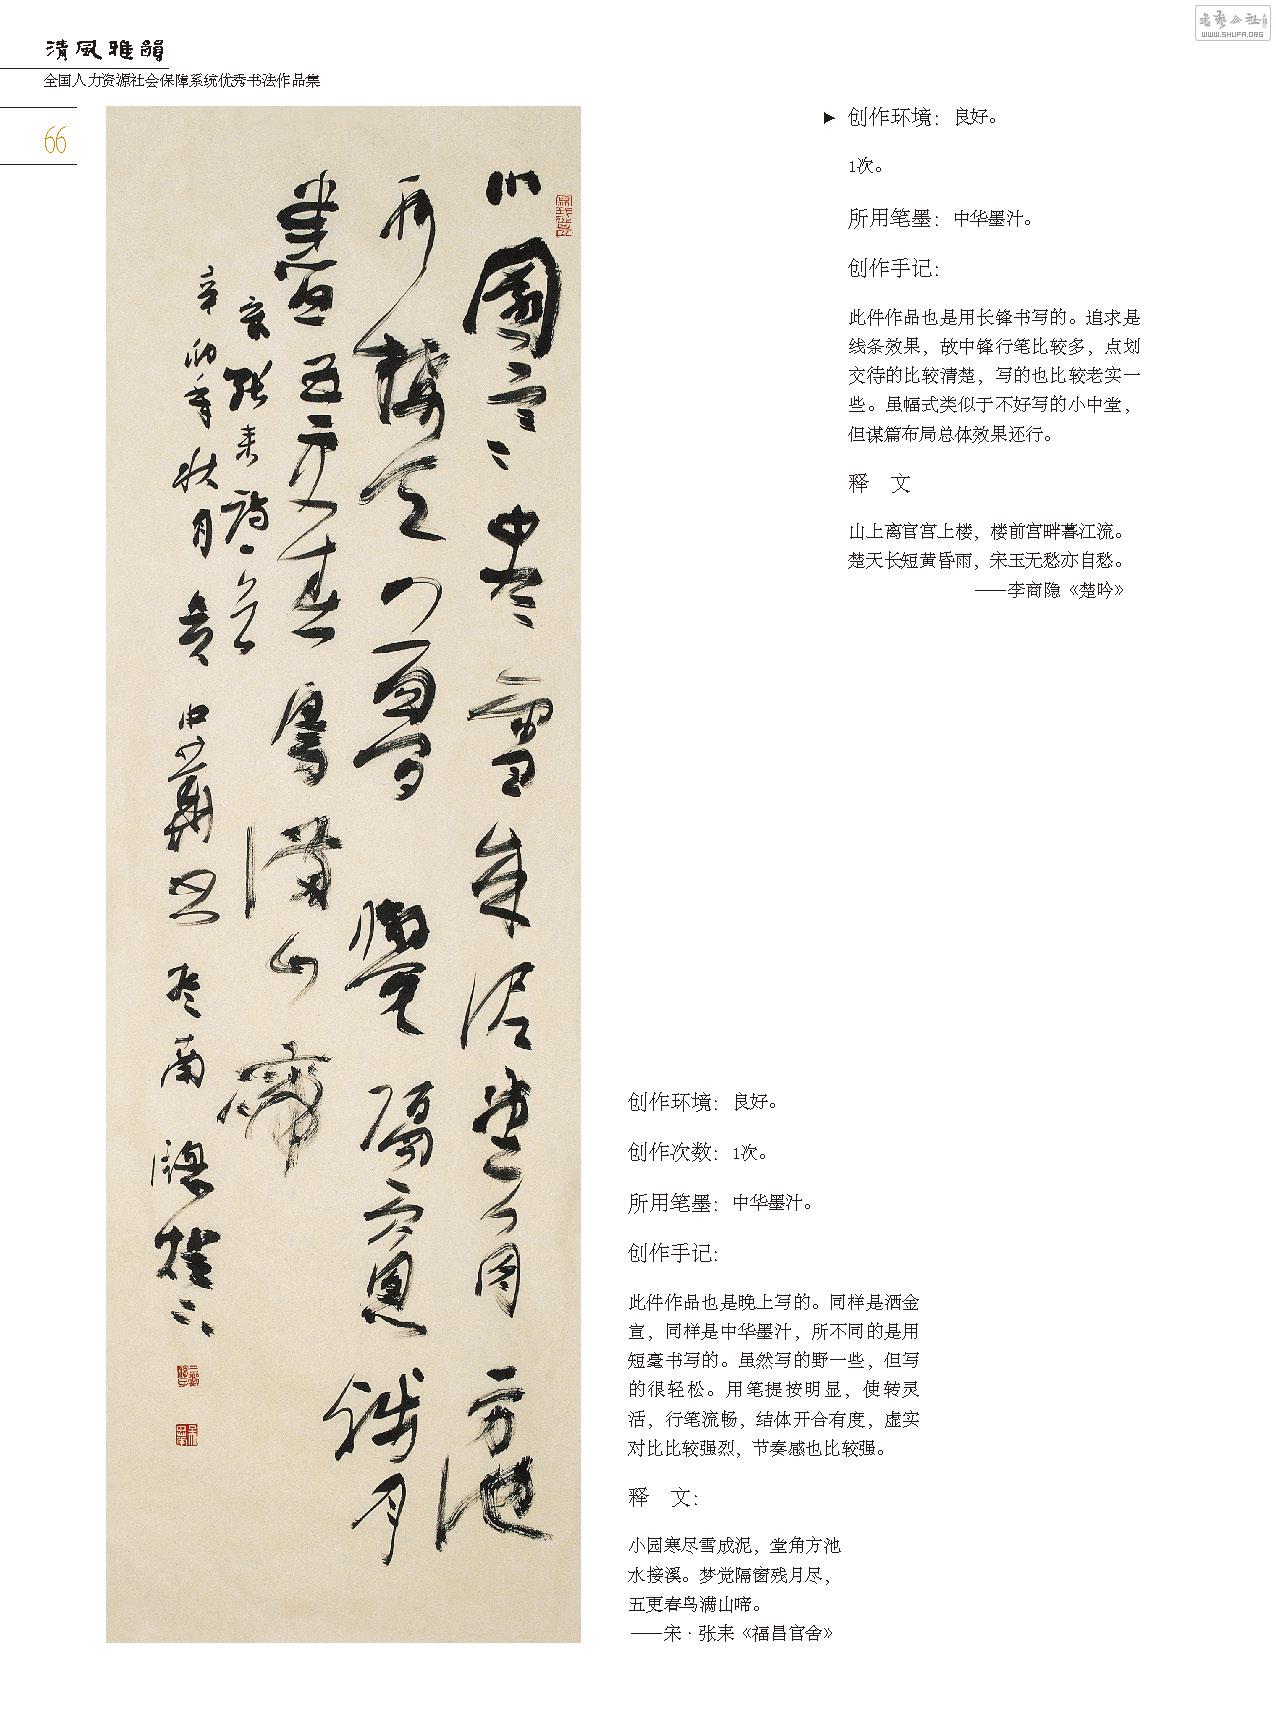 清風雅韻
全国人力资源社会保障系统优秀书法作品集
66
WWW.SHUFA.ORG
创作环境：良好。
1次。
所用笔墨：中华墨汁。
创作手记：
此件作品也是用长锋书写的。追求是
线条效果，故中锋行笔比较多，点划
交待的比较清楚，写的也比较老实一
些。虽幅式类似于不好写的小中堂，
但谋篇布局总体效果还行。
释　文
山上离宫宫上楼，楼前宫畔暮江流。
楚天长短黄昏雨，宋玉无愁亦自愁。
——李商隐《楚吟》
小園寒寒盡雪成泥堂角方池
水接溪夢覺隔窗殘月
盡五更春鳥滿山啼
宋張耒詩一首
辛卯年秋月
创作环境：良好。
创作次数：1次。
所用笔墨：中华墨汁。
创作手记：
此件作品也是晚上写的。同样是洒金
宣，同样是中华墨汁，所不同的是用
短毫书写的。虽然写的野一些，但写
的很轻松。用笔提按明显，使转灵
活，行笔流畅，结体开合有度，虚实
对比比较强烈，节奏感也比较强。
释　文：
小园寒尽雪成泥，堂角方池
水接溪。梦觉隔窗残月尽，
五更春鸟满山啼。
——宋·张耒《福昌官舍》